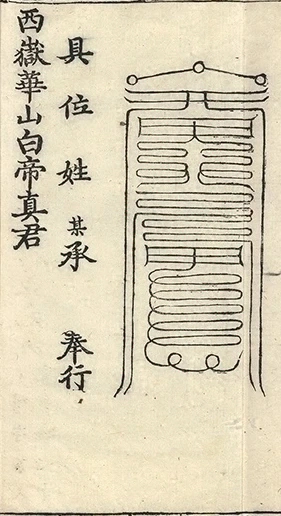 具位姓某承奉行
西嶽華山白帝真君